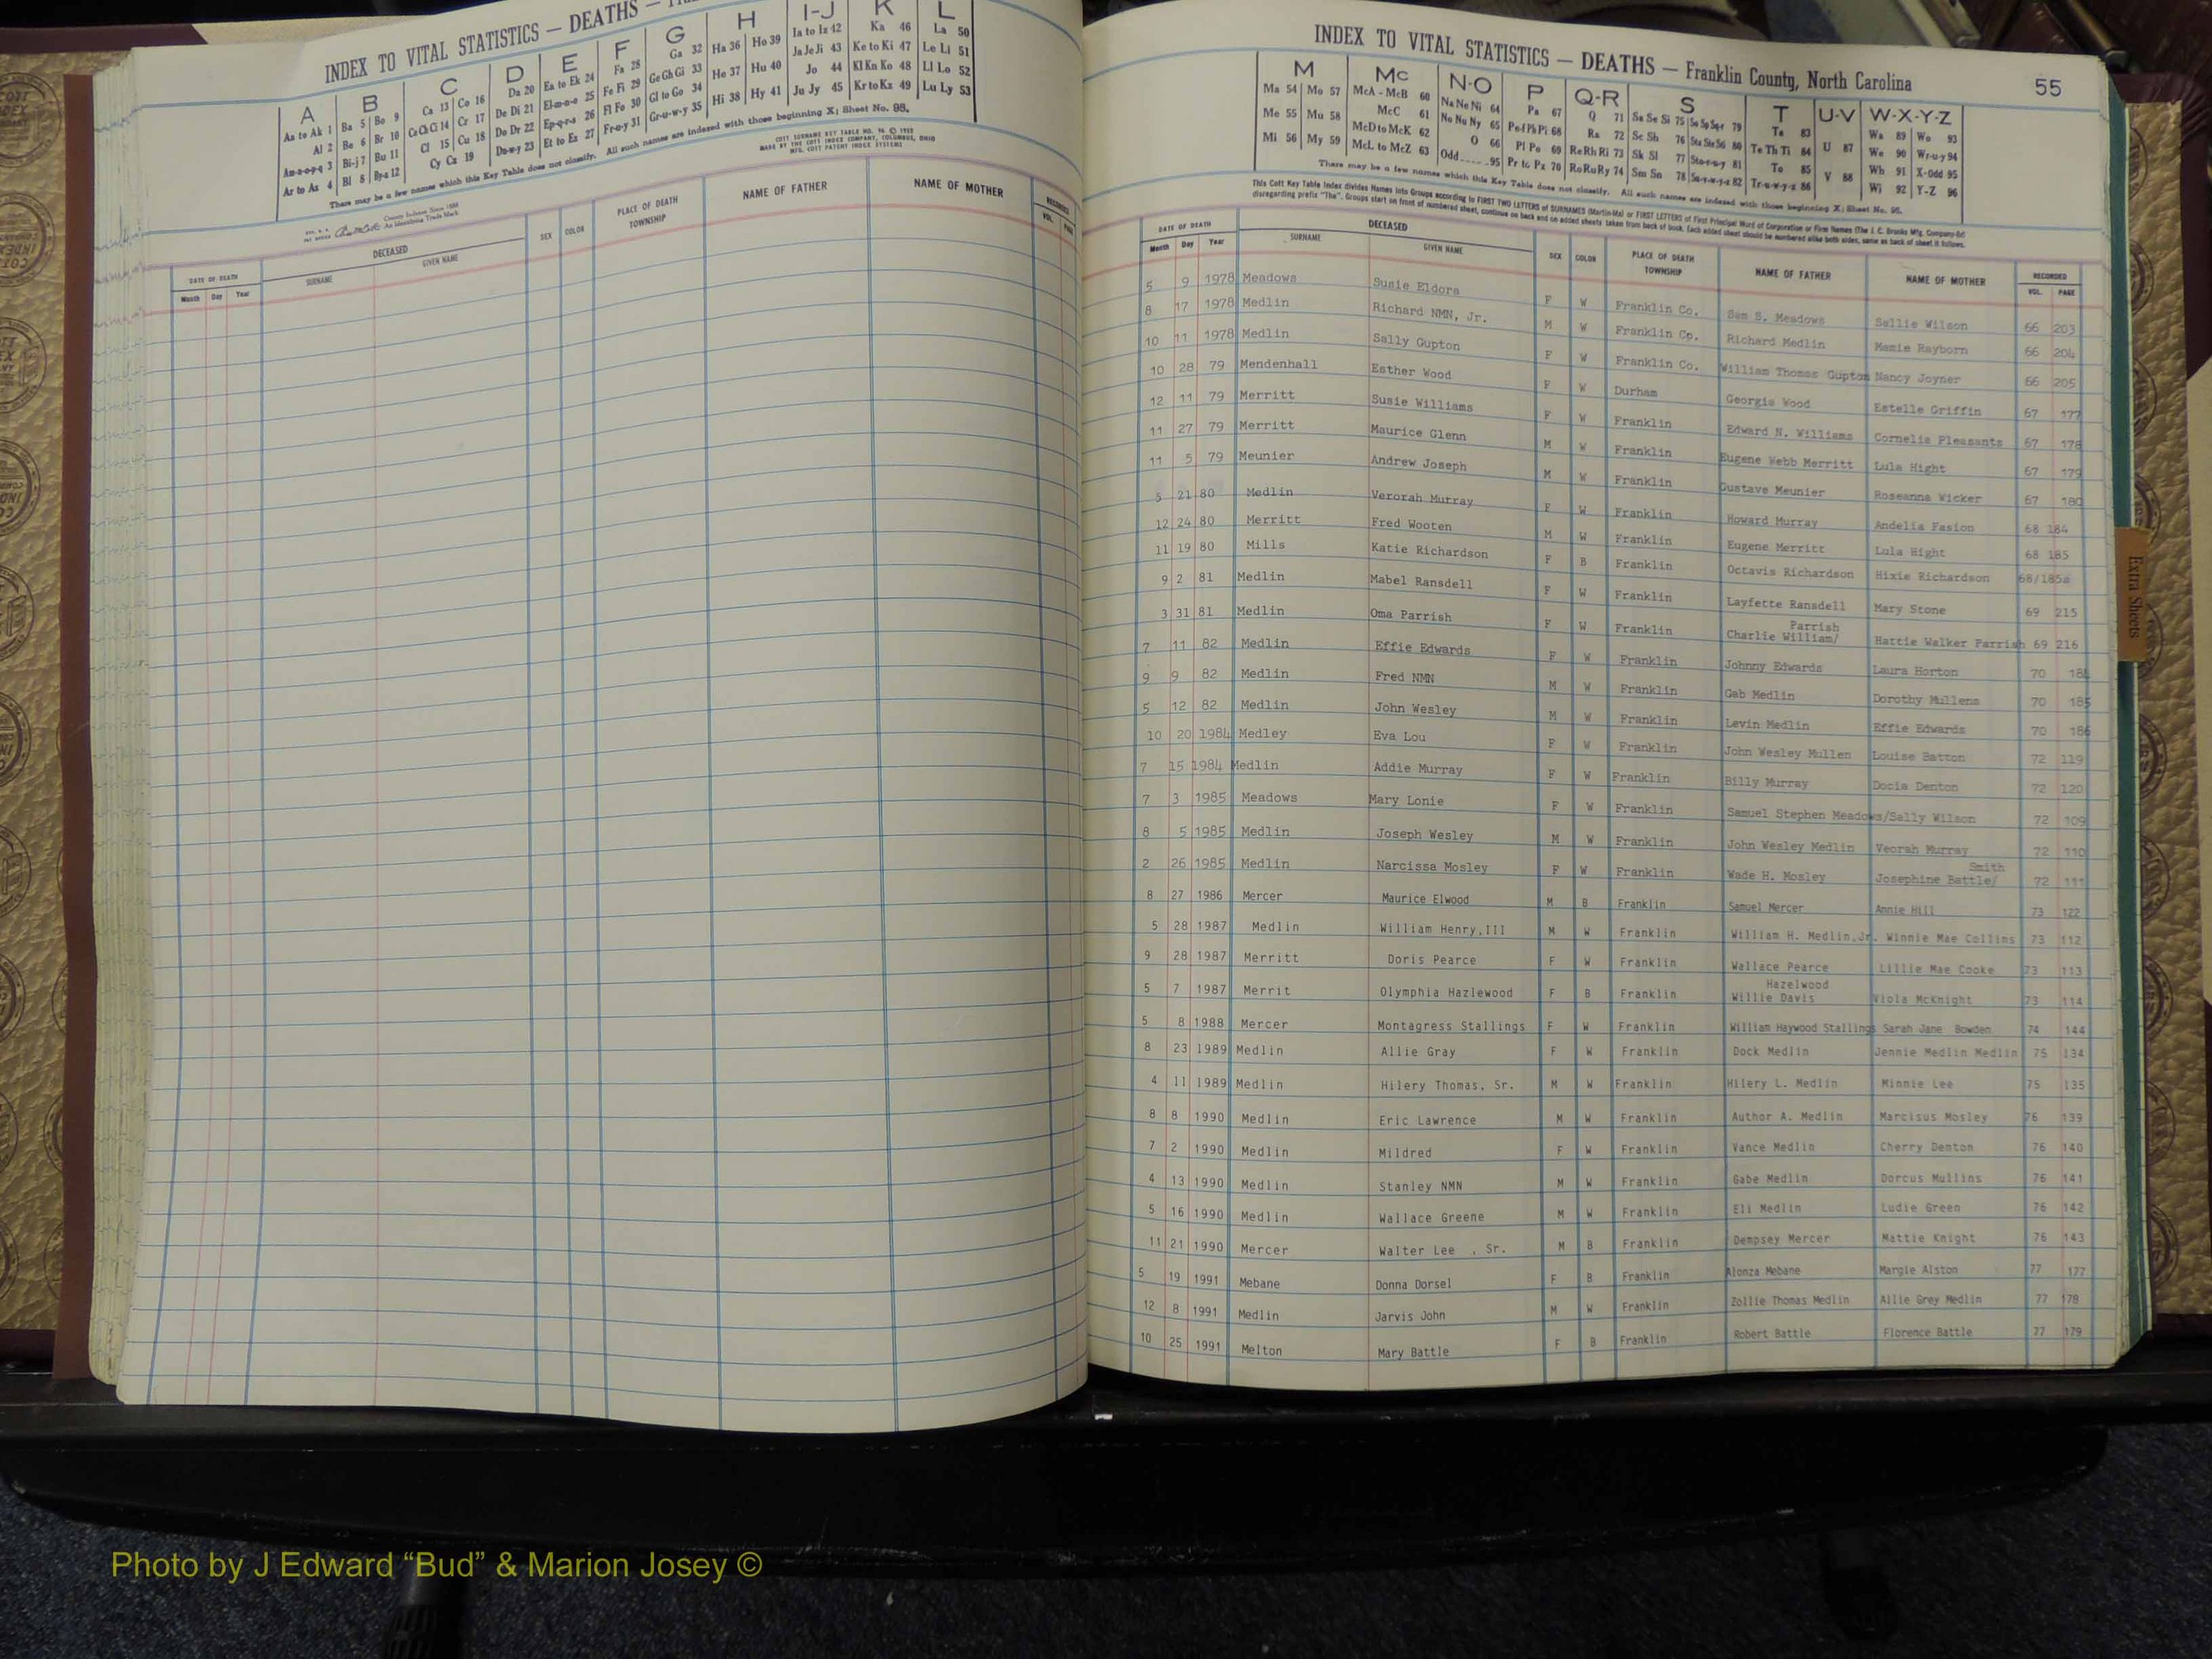 INDEX TO VITAL STATISTICS — DEATHS —
A B C D E F G H I-J K L
Aa to Ak 1 Ba 5 Bo 9 Ca 13 Co 16 Da 20 Ea to Ek 24 Fa 28 Ga 32 Ha 36 Ho 39 Ia to Iz 42 Ka 46 La 50
Al 2 Be 6 Br 10 Ce Ch Ci 14 Cr 17 De Di 21 El-m-n-o 25 Fe Fi 29 Ge Gh Gi 33 He 37 Hu 40 Ja Je Ji 43 Ke to Ki 47 Le Li 51
Am-n-o-p-q 3 Bi-j 7 Bu 11 Cl 15 Cu 18 Do Dr 22 Ep-q-r-s 26 Fl Fo 30 Gl to Go 34 Hi 38 Hy 41 Jo 44 Kl Kn Ko 48 Ll Lo 52
Ar to Az 4 Bl 8 By-z 12 Cy Cz 19 Du-w-y 23 Et to Ez 27 Fr-u-y 31 Gr-u-w-y 35 Ju Jy 45 Kr to Kz 49 Lu Ly 53
There may be a few names which this Key Table does not classify. All such names are indexed with those beginning X; Sheet No. 95.
DATE OF DEATH DECEASED SEX COLOR PLACE OF DEATH TOWNSHIP NAME OF FATHER NAME OF MOTHER RECORDED
Month Day Year SURNAME GIVEN NAME VOL. PAGE
INDEX TO VITAL STATISTICS — DEATHS — Franklin County, North Carolina 55
M Mc N-O P Q-R S T U-V W-X-Y-Z
Ma 54 Mo 57 McA - McB 60 Na Ne Ni 64 Pa 67 Q 71 Sa Se Si 75 So Sp Sq-r 79 Ta 83 U 87 Wa 89 Wo 93
Me 55 Mu 58 McC 61 No Nu Ny 65 Pe-f Ph Pi 68 Ra 72 Sc Sh 76 Sta Ste Sti 80 Te Th Ti 84 V 88 We 90 Wr-u-y 94
Mi 56 My 59 McD to McK 62 O 66 Pl Po 69 Re Rh Ri 73 Sk Sl 77 Sto-r-u-y 81 To 85 Wh 91 X-Odd 95
McL to McZ 63 Odd 95 Pr to Pz 70 Ro Ru Ry 74 Sm Sn 78 Su-v-w-y-z 82 Tr-u-w-y-z 86 Wi 92 Y-Z 96
There may be a few names which this Key Table does not classify. All such names are indexed with those beginning X; Sheet No. 95.
This Cott Key Table Index divides Names into Groups according to FIRST TWO LETTERS of SURNAMES (Martin-Ma) or FIRST LETTERS of First Principal Word of Corporation or Firm Names (The J. C. Brooks Mfg. Company-Br)
disregarding prefix "The". Groups start on front of numbered sheet, continue on back and on added sheets taken from back of book. Each added sheet should be numbered alike both sides, same as back of sheet it follows.
DATE OF DEATH DECEASED SEX COLOR PLACE OF DEATH TOWNSHIP NAME OF FATHER NAME OF MOTHER RECORDED
Month Day Year SURNAME GIVEN NAME VOL. PAGE
5 9 1978 Meadows Susie Eldora F W Franklin Co. Sam S. Meadows Sallie Wilson 66 203
8 17 1978 Medlin Richard NMN, Jr. M W Franklin Co. Richard Medlin Mamie Rayborn 66 204
10 11 1978 Medlin Sally Gupton F W Franklin Co. William Thomas Gupton Nancy Joyner 66 205
10 28 79 Mendenhall Esther Wood F W Durham Georgie Wood Estelle Griffin 67 177
12 11 79 Merritt Susie Williams F W Franklin Edward N. Williams Cornelia Pleasants 67 178
11 27 79 Merritt Maurice Glenn M W Franklin Eugene Webb Merritt Lula Hight 67 179
11 5 79 Meunier Andrew Joseph M W Franklin Gustave Meunier Roseanna Wicker 67 180
5 21 80 Medlin Verorah Murray F W Franklin Howard Murray Andelia Fasion 68 184
12 24 80 Merritt Fred Wooten M W Franklin Eugene Merritt Lula Hight 68 185
11 19 80 Mills Katie Richardson F B Franklin Octavis Richardson Hixie Richardson 68/185a
9 2 81 Medlin Mabel Ransdell F W Franklin Layfette Ransdell Mary Stone 69 215
3 31 81 Medlin Oma Parrish F W Franklin Charlie William/ Parrish Hattie Walker Parrish 69 216
7 11 82 Medlin Effie Edwards F W Franklin Johnny Edwards Laura Horton 70 184
9 9 82 Medlin Fred NMN M W Franklin Gab Medlin Dorothy Mullens 70 185
5 12 82 Medlin John Wesley M W Franklin Levin Medlin Effie Edwards 70 186
10 20 1984 Medley Eva Lou F W Franklin John Wesley Mullen Louise Batton 72 119
7 15 1984 Medlin Addie Murray F W Franklin Billy Murray Docia Denton 72 120
7 3 1985 Meadows Mary Lonie F W Franklin Samuel Stephen Meadows/Sally Wilson 72 109
8 5 1985 Medlin Joseph Wesley M W Franklin John Wesley Medlin Veorah Murray 72 110
2 26 1985 Medlin Narcissa Mosley F W Franklin Wade H. Mosley Josephine Battle/ Smith 72 111
8 27 1986 Mercer Maurice Elwood M B Franklin Samuel Mercer Annie Hill 73 122
5 28 1987 Medlin William Henry,III M W Franklin William H. Medlin,Jr. Winnie Mae Collins 73 112
9 28 1987 Merritt Doris Pearce F W Franklin Wallace Pearce Lillie Mae Cooke 73 113
5 7 1987 Merrit Olymphia Hazlewood F B Franklin Willie Davis Hazelwood Viola McKnight 73 114
5 8 1988 Mercer Montagress Stallings F W Franklin William Haywood Stallings Sarah Jane Bowden 74 144
8 23 1989 Medlin Allie Gray F W Franklin Dock Medlin Jennie Medlin Medlin 75 134
4 11 1989 Medlin Hilery Thomas, Sr. M W Franklin Hilery L. Medlin Minnie Lee 75 135
8 8 1990 Medlin Eric Lawrence M W Franklin Author A. Medlin Marcisus Mosley 76 139
7 2 1990 Medlin Mildred F W Franklin Vance Medlin Cherry Denton 76 140
4 13 1990 Medlin Stanley NMN M W Franklin Gabe Medlin Dorcus Mullins 76 141
5 16 1990 Medlin Wallace Greene M W Franklin Eli Medlin Ludie Green 76 142
11 21 1990 Mercer Walter Lee , Sr. M B Franklin Dempsey Mercer Mattie Knight 76 143
5 19 1991 Mebane Donna Dorsel F B Franklin Alonza Mebane Margie Alston 77 177
12 8 1991 Medlin Jarvis John M W Franklin Zollie Thomas Medlin Allie Grey Medlin 77 178
10 25 1991 Melton Mary Battle F B Franklin Robert Battle Florence Battle 77 179
Extra Sheets
Photo by J Edward “Bud” & Marion Josey ©